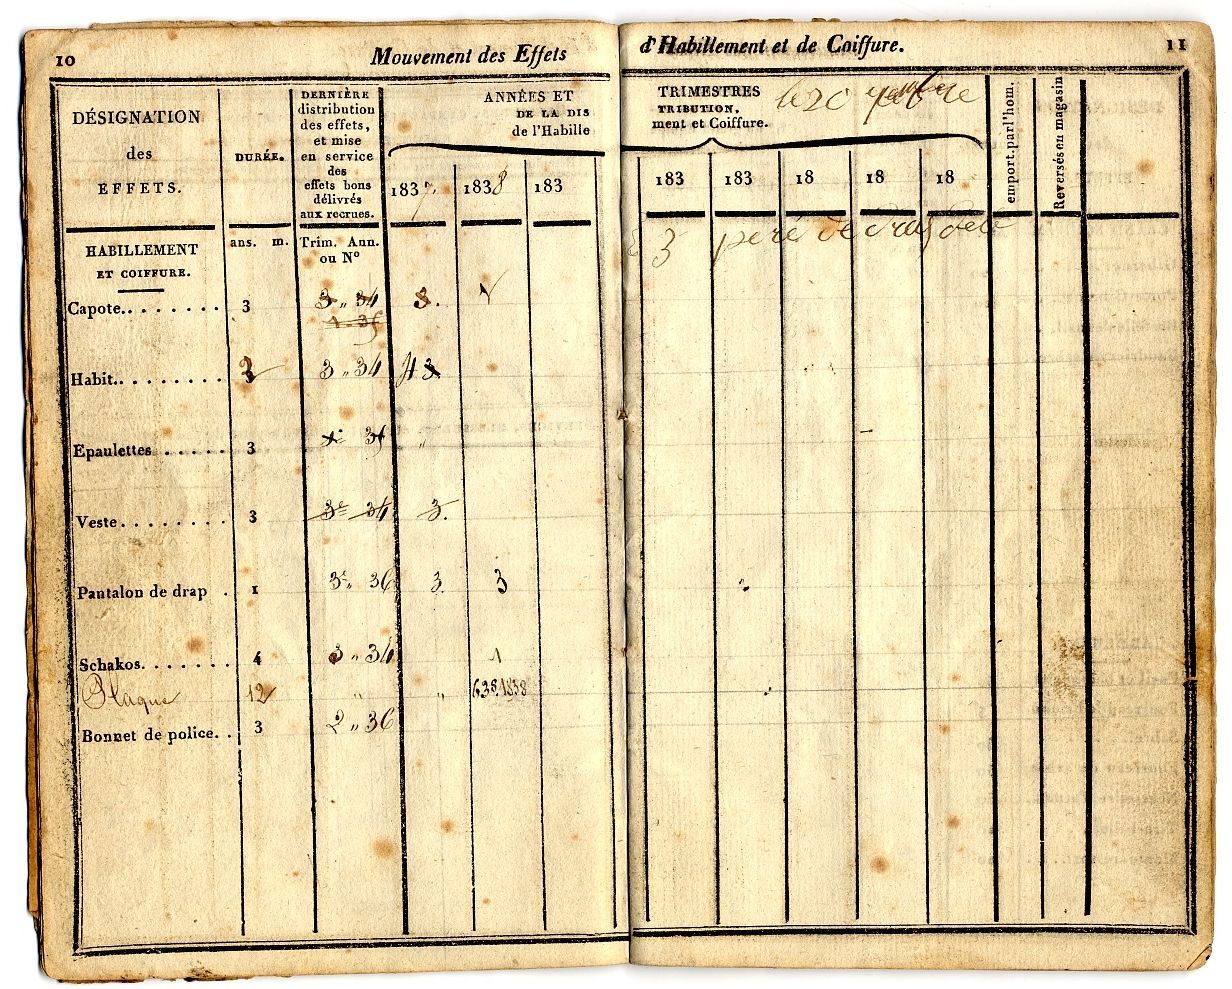 10
Mouvement des Effets
d'Habillement et de Coiffure.
11
DÉSIGNATION
des
EFFETS.
DURÉE.
DERNIÈRE
distribution
des effets,
et mise
en service
des
effets bons
délivrés
aux recrues.
ANNÉES ET
DE LA DIS
de l'Habille
TRIMESTRES
TRIBUTION.
ment et Coiffure.
le 20
1837 1838 183
183 183 18 18 18
emport. par l'hom.
Reversés en magasin
HABILLEMENT
ET COIFFURE.
ans. m.
Trim. Ann.
ou N°
3
Capote........ 3 3 „ 34 3.
1 „ 35
Habit......... 3 „ 34 3.
Epaulettes ..... 3 „
Veste........ 3 3e 34 3.
Pantalon de drap . 1 3e „ 36 3. 3
Schakos....... 4 3 „ 34 1
Plaque 12 „ „ 638.1838
Bonnet de police.. 3 2 „ 36